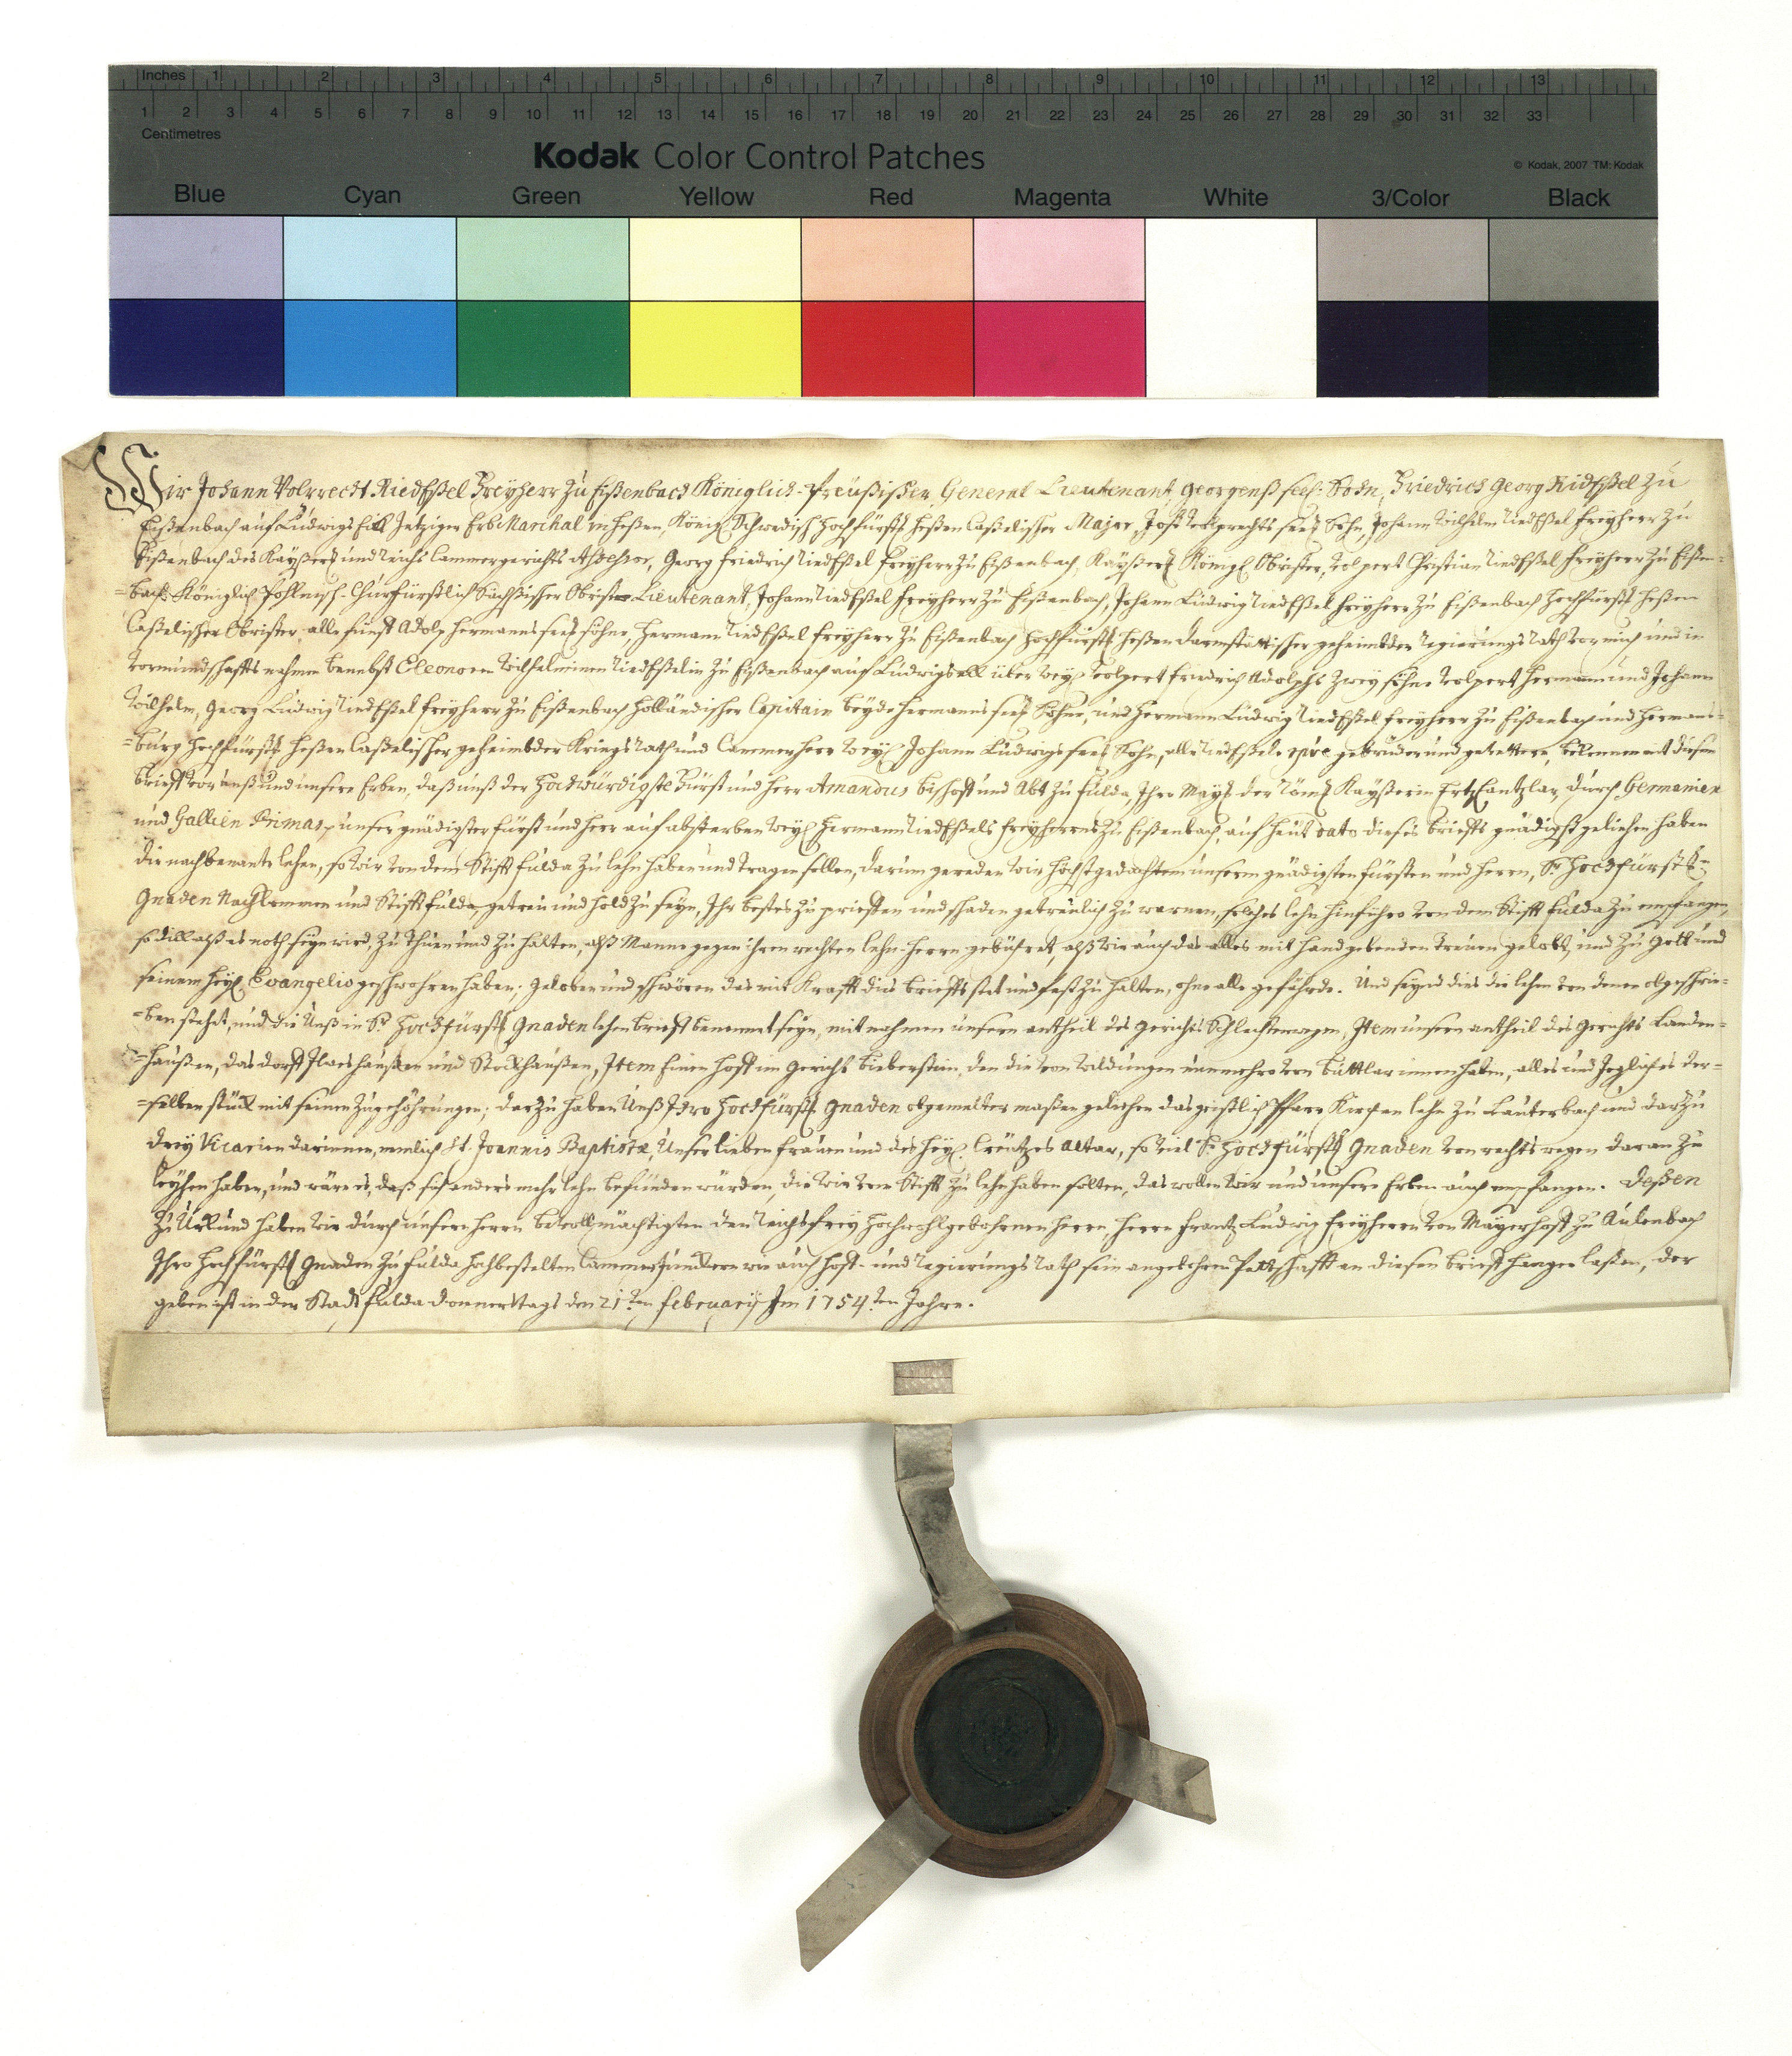 Inches 1 2 3 4 5 6 7 8 9 10 11 12 13
1 2 3 4 5 6 7 8 9 10 11 12 13 14 15 16 17 18 19 20 21 22 23 24 25 26 27 28 29 30 31 32 33
Centimetres
Kodak Color Control Patches
© Kodak, 2007 TM: Kodak
Blue Cyan Green Yellow Red Magenta White 3/Color Black
Wir Johann Volprecht Riedeßel Freyherr zu Eißenbach Königlich-Preußischer General Lieutenant, Georgenß seel: Sohn, Friedrich Georg Riedeßel zu
Eißenbach auf Ludwigs Eck Jetziger Erb Marchal in Heßen, Königl. Schwedisch Hochfürstl. Heßen Caßelischer Major, Jost Volprechts seel. Sohn, Johann Wilhelm Riedeßel Freyherr zu
Eißenbach des Kayßerl. und Reichs Cammergerichts Assessor, Georg Friedrich Riedeßel Freyherr zu Eißenbach, Kayßerl. Königl. Obrister, Volpert Christian Riedeßel Freyherr zu Eißen=
=bach Königlich Pohlnisch-Churfürstlich Sächßischer Obrist Lieutenant, Johann Riedeßel Freyherr zu Eißenbach, Johann Ludwig Riedeßel Freyherr zu Eißenbach Hochfürstl. Heßen
Caßelischer Obrister, alle fünff Adolp Hermanns seel. Söhne, Hermann Riedeßel Freyherr zu Eißenbach Hochfürstl. Heßen Darmstättischer geheimbder Regierungs Rath vor mich und in
Vormundschaffts nahmen benebst Eleonoren Wilhelminen Riedeßelin zu Eißenbach auf Ludwigseck über weyl. Volpert Friedrich Adolphs zwey söhne Volpert Hermann und Johann
Wilhelm, Georg Ludwig Riedeßel Freyherr zu Eißenbach Holländischer Capitain beyde Hermanns seel. Söhne, und Hermann Ludwig Riedeßel Freyherr zu Eißenbach und Hermans=
=burg Hochfürstl. Heßen Caßelischer geheimbder Kriegs Rath und Cammerherr weyl. Johann Ludwigs seel. Sohn, alle Riedeßele gebrüder und gevettere, bekennen mit diesem
Brieff vor unß und unsere Erben, daß unß der Hochwürdigste Fürst und Herr Amandus Bischoff und Abt zu Fulda, Ihro Mayt. der Röml. Kayßerin Ertz Cantzlar, durch Germanien
und Gallien Primas, unser gnädigster Fürst und Herr auf absterben weyl. Hermann Riedeßels Freyherrns zu Eißenbach, auf heut dato dieses brieffs gnädigst geliehen haben
die nachbenante lehen, so wir von dem Stifft Fulda zu lehn haben und tragen sollen, darum gereden wir höchstgedachtem unserm gnädigsten Fürsten und Herrn, Sr Hochfürstl.
Gnaden Nachkommen und Stifft Fulda getreu und hold zu seyn, Ihr bestes zu prießen und schaden getreulich zu warnen, solches lehn hinführo von dem Stifft Fulda zu empfangen,
so dick alß es noth seyn wird, zu thuen und zu halten, alß Manne gegen ihren rechten lehn-herrn gebühret, alß wir auch das alles mit handgebenden treuen gelobt, und zu Gott und
seinem heyl. Evangelio geschwohren haben; geloben und schwören das mit Krafft dies brieffs stet und fest zu halten, ohne alle gefährde. Und seynd dies die lehen von denen obgeschrie=
=ben stehet, und die Unß in Sr Hochfürstl. Gnaden lehen brieff benennet seyn, mit nahmen unsern antheil des gerichts Schlechtenwegen, Item unsern antheil des gerichts Landen=
=haußen, das dorff und Stockhaußen, Item Einen Hoff im gericht Bieberstein, den die von Wildungen nunmehro von Buttlar innen haben, alles und Jegliches der=
=selben stück mit seinen zugehöhrungen; darzu haben Unß Ihro Hochfürstl. Gnaden obgemelter maßen geliehen das geistlich Pfarr Kirchen lehn zu Lauterbach und darzu
drey Vicarien darinnen, nemlich St. Joannis Baptistæ, Unser lieben Frauen und des heyl. Creutzes Altar, so viel Sr Hochfürstl. Gnaden von rechts wegen daran zu
leyhen haben, und wäre es, daß sich anders mehr lehn befünden würden, die wir vom Stifft zu lehn haben solten, das wollen wir und unsere Erben auch empfangen. Deßen
zu Urkund haben wir durch unsern herrn bevollmächtigten den Reichsfrey hochwohlgebohrnen herrn, herrn Frantz Ludwig Freyherrn von Mayerhoff zu Aulenbach
Ihro Hochfürstl. Gnaden zu Fulda hochbestelten Cammerjunckern wie auch Hoff- und Regierungs Rath sein angebohren Pettschafft an diesen brieff hangen laßen, der
geben ist in der Stadt Fulda Donnerstags den 21ten February Im 1754ten Jahre.